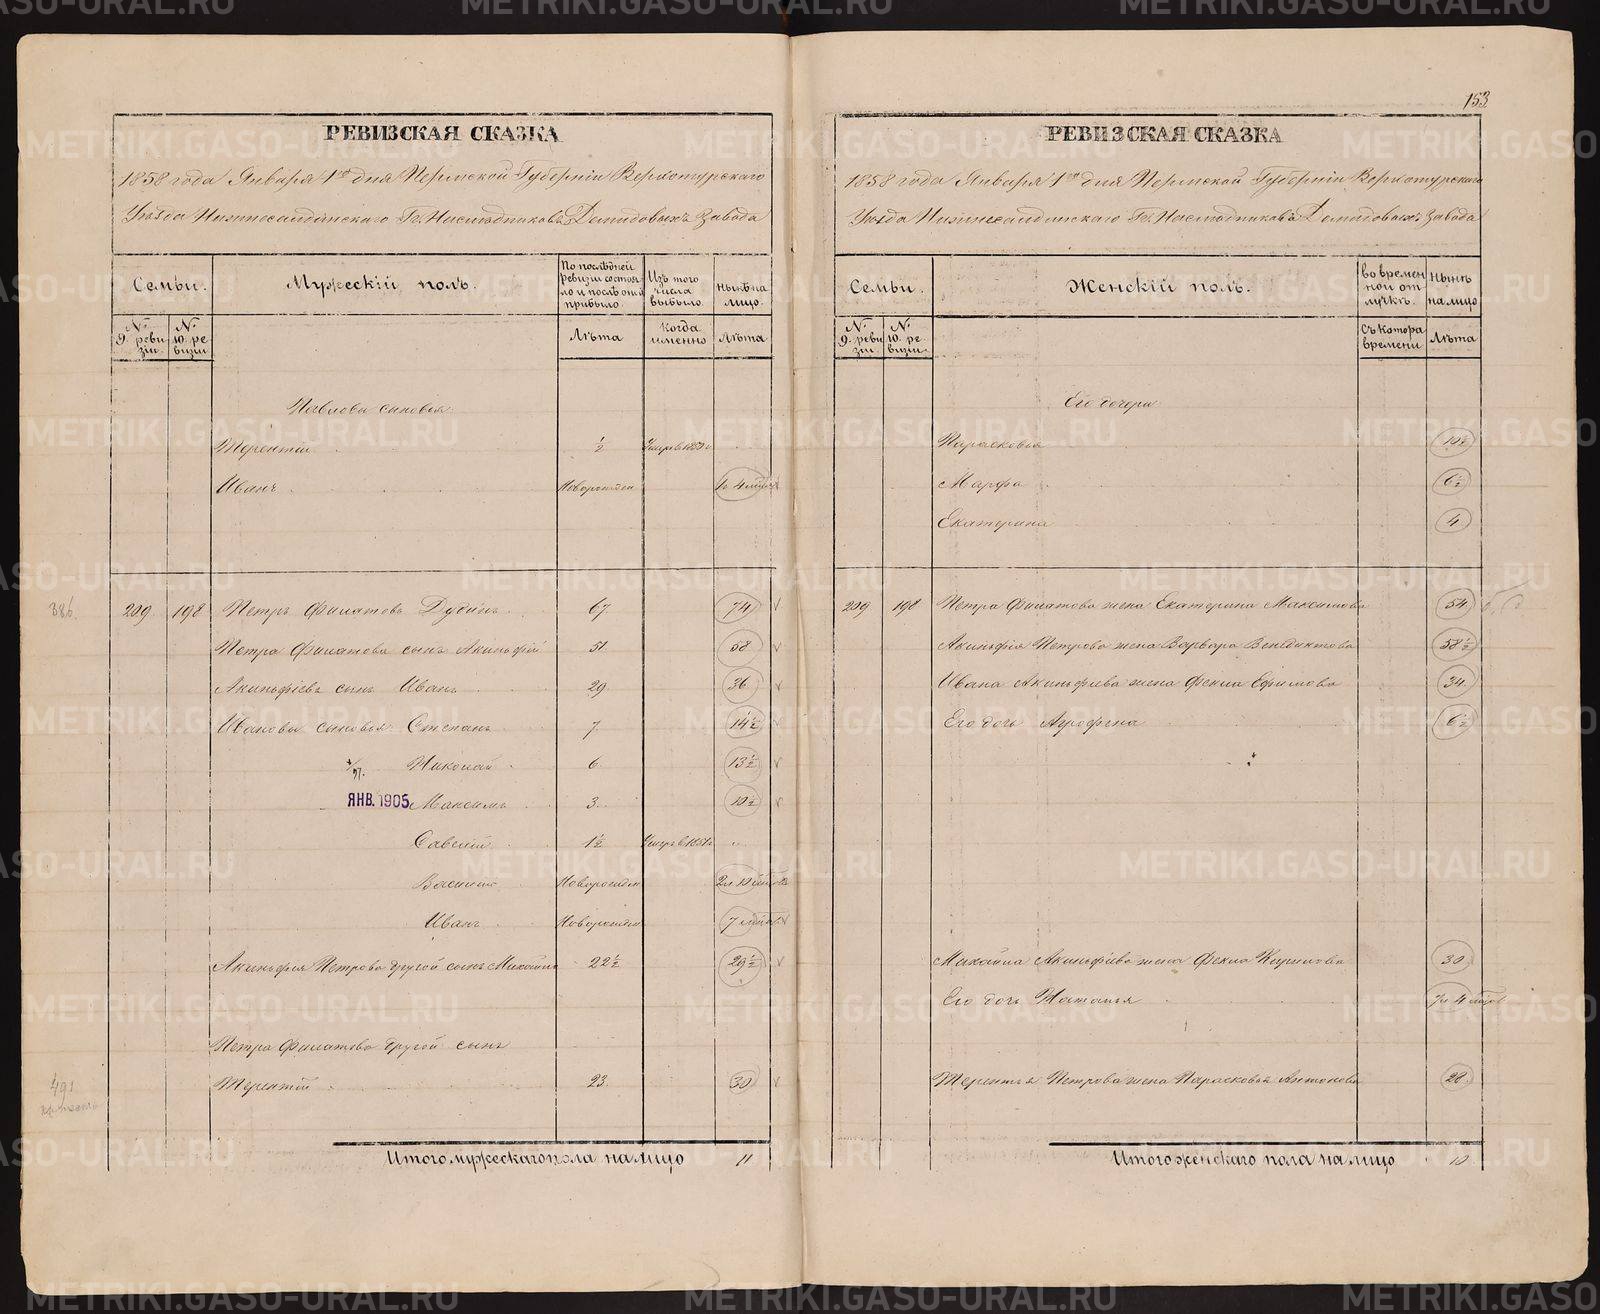 153
РЕВИЗСКАЯ СКАЗКА
1858 года Января 1го дня Пермской Губерніи Верхотурскаго
Уѣзда Нижнесалдинскаго Гг. Наслѣдниковъ Демидовыхъ Завода
Семьи.
Мужескій полъ.
По послѣдней ревизіи состояло и послѣ оной прибыло
Изъ того числа выбыло
Нынѣ на лицо.
№ 9. ревизіи
№ 10. ревизіи
Лѣта
когда именно
Лѣта
Павловы сыновья
Терентій ½ Умеръ в
Иванъ Новорожден 4 мѣся
386
209 198 Петръ Филатовъ Дубинъ 67 74
Петра Филатова сынъ Акинфій 51 58
Акинфіевъ сынъ Иванъ 29 36
Ивановы сыновья Степанъ 7 14½
Николай 6 13½
ЯНВ. 1905
Максимъ 3 10½
Савелій 1½ Умеръ в 1851
Василій Новорожден 2
Иванъ Новорожден 7
Акинфія Петрова другой сынъ Михайла 22½ 29½
Петра Филатова другой сынъ
491
Терентій 23 30
Итого мужескаго пола на лицо 11
РЕВИЗСКАЯ СКАЗКА
1858 года Января 1го дня Пермской Губерніи Верхотурскаго
Уѣзда Нижнесалдинскаго Гг. Наслѣдниковъ Демидовыхъ Завода
Семьи.
Женскій полъ.
во временной отлучкѣ.
Нынѣ на лицо
№ 9. ревизіи
№ 10. ревизіи
Съ котора времени
Лѣта
Его дочери
Парасковья 10½
Марфа 6½
Екатерина 4
209 198 Петра Филатова жена Екатерина Максимова 54
Акинфія Петрова жена Варвара Венедиктова 58½
Ивана Акинфиева жена Фекла Ефимова 34
Его дочь Агрофена 6½
Михайла Акинфіева жена Фекла Карпова 30
Его дочь Наталья 4
Терентья Петрова жена Парасковья Антонова 28
Итого женскаго пола на лицо 10
METRIKI.GASO-URAL.RU